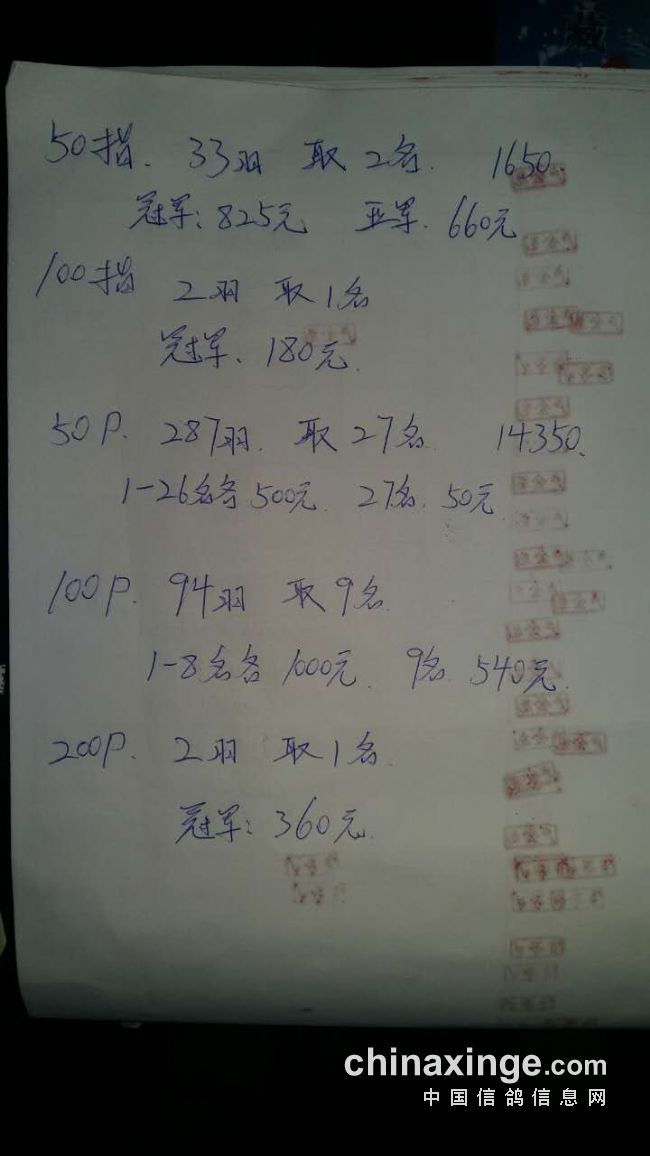 藏
50指. 33羽 取2名. 1650.
冠军: 825元 亚军. 660元
100指 2羽 取1名
冠军、180元.
50P. 287羽. 取27名. 14350.
1-26名各500元. 27名. 50元.
100P. 94羽 取9名.
1-8名各1000元. 9名. 540元.
200P. 2羽 取1名.
冠军: 360元.
chinaxinge.com
中国信鸽信息网